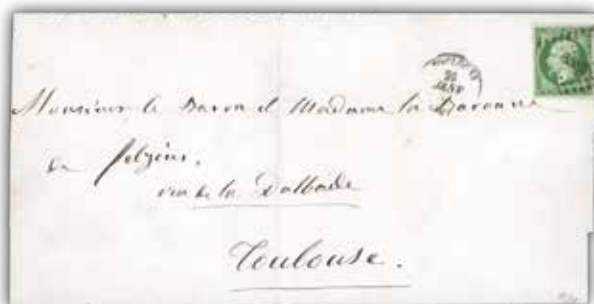 Monsieur le Baron et Madame la Baronne
de
rue de la Dalbade
Toulouse.